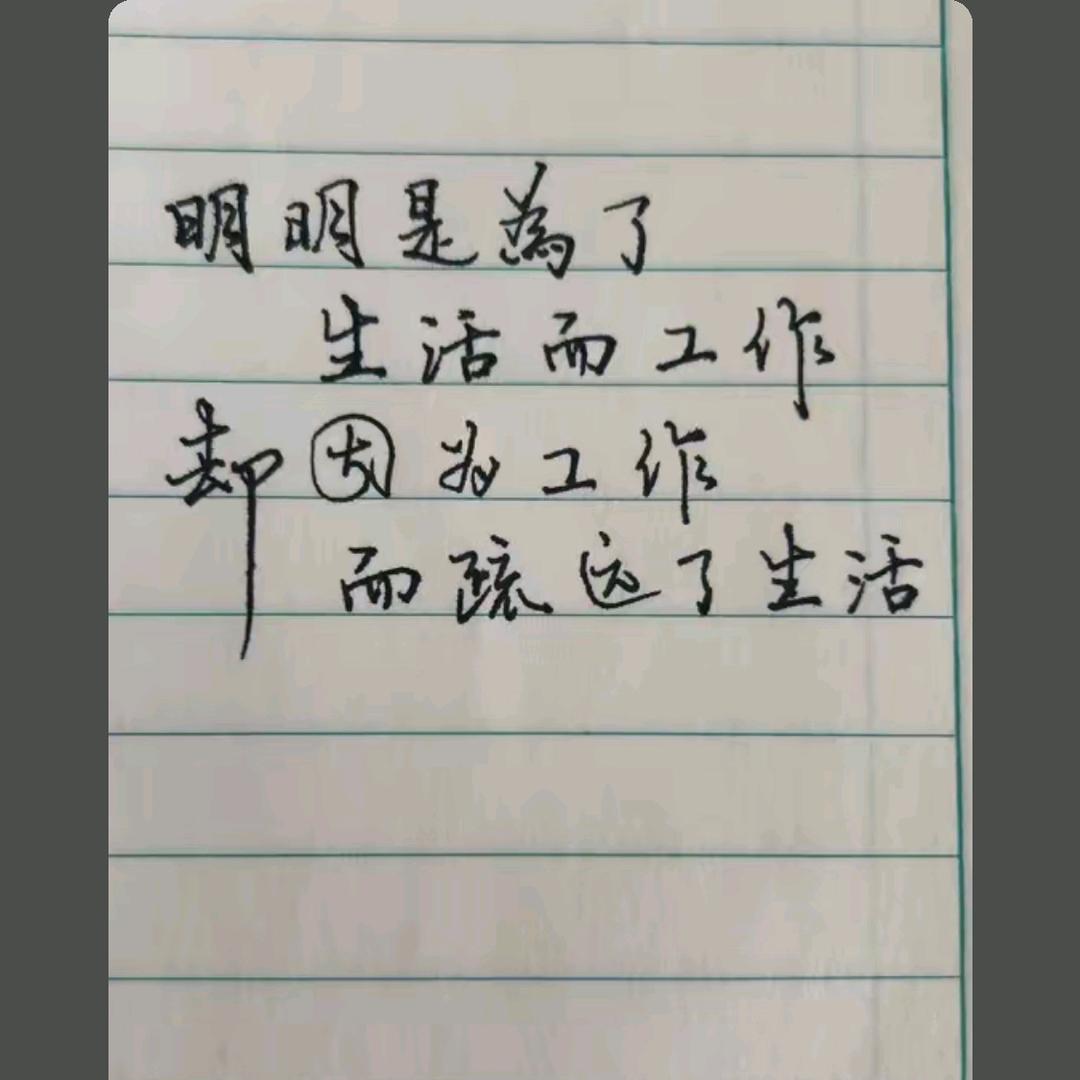 明明是為了
生活而工作
却因为工作
而疏远了生活